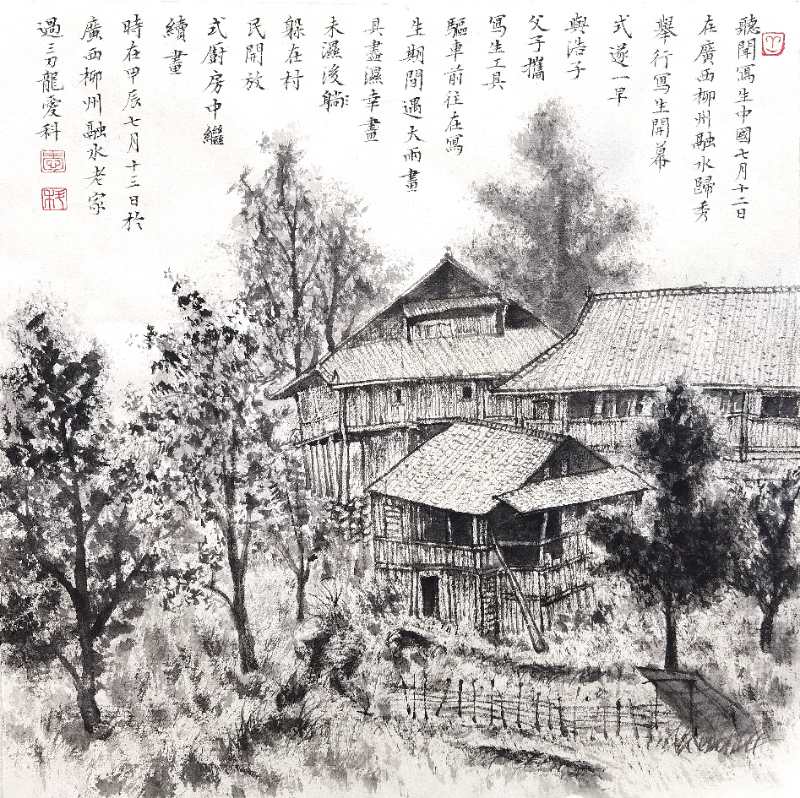 聽聞寫生中國七月十二日
在廣西柳州融水歸秀
舉行寫生開幕
式遂一早
與浩子
父子攜
寫生工具
驅車前往在寫
生期間遇大雨畫
具盡濕幸畫
未濕後躺
躲在村
民開放
式廚房中繼
續畫
時在甲辰七月十三日於
廣西柳州融水老家
過三刀龍愛科